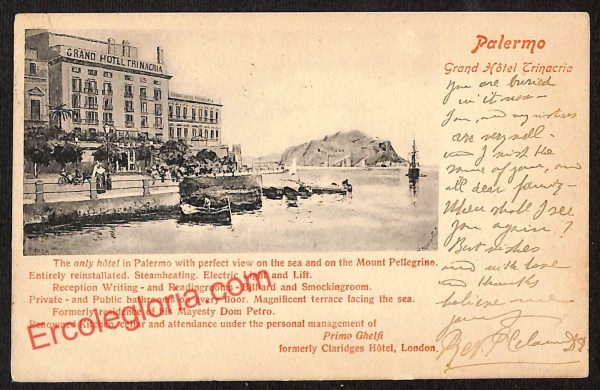 GRAND HOTEL TRINACRIA
Palermo
Grand Hôtel Trinacria
you are buried
in it now –
I am, and my sisters
are very well –
and I wish the
same of you, and
all dear family –
When shall I see
you again?
Best wishes
and with love
and thanks
believe me
yours
Rev. P.
The only hôtel in Palermo with perfect view on the sea and on the Mount Pellegrino.
Entirely reinstallated. Steamheating. Electric Light and Lift.
Reception Writing - and Readingroom. Billiard and Smockingroom.
Private - and Public bathrooms on every floor. Magnificent terrace facing the sea.
Formerly residence of his Mayesty Dom Petro.
Renowned Kitchen, cellar and attendance under the personal management of
Primo Ghelfi
formerly Claridges Hôtel, London.
Ercolegloria.com